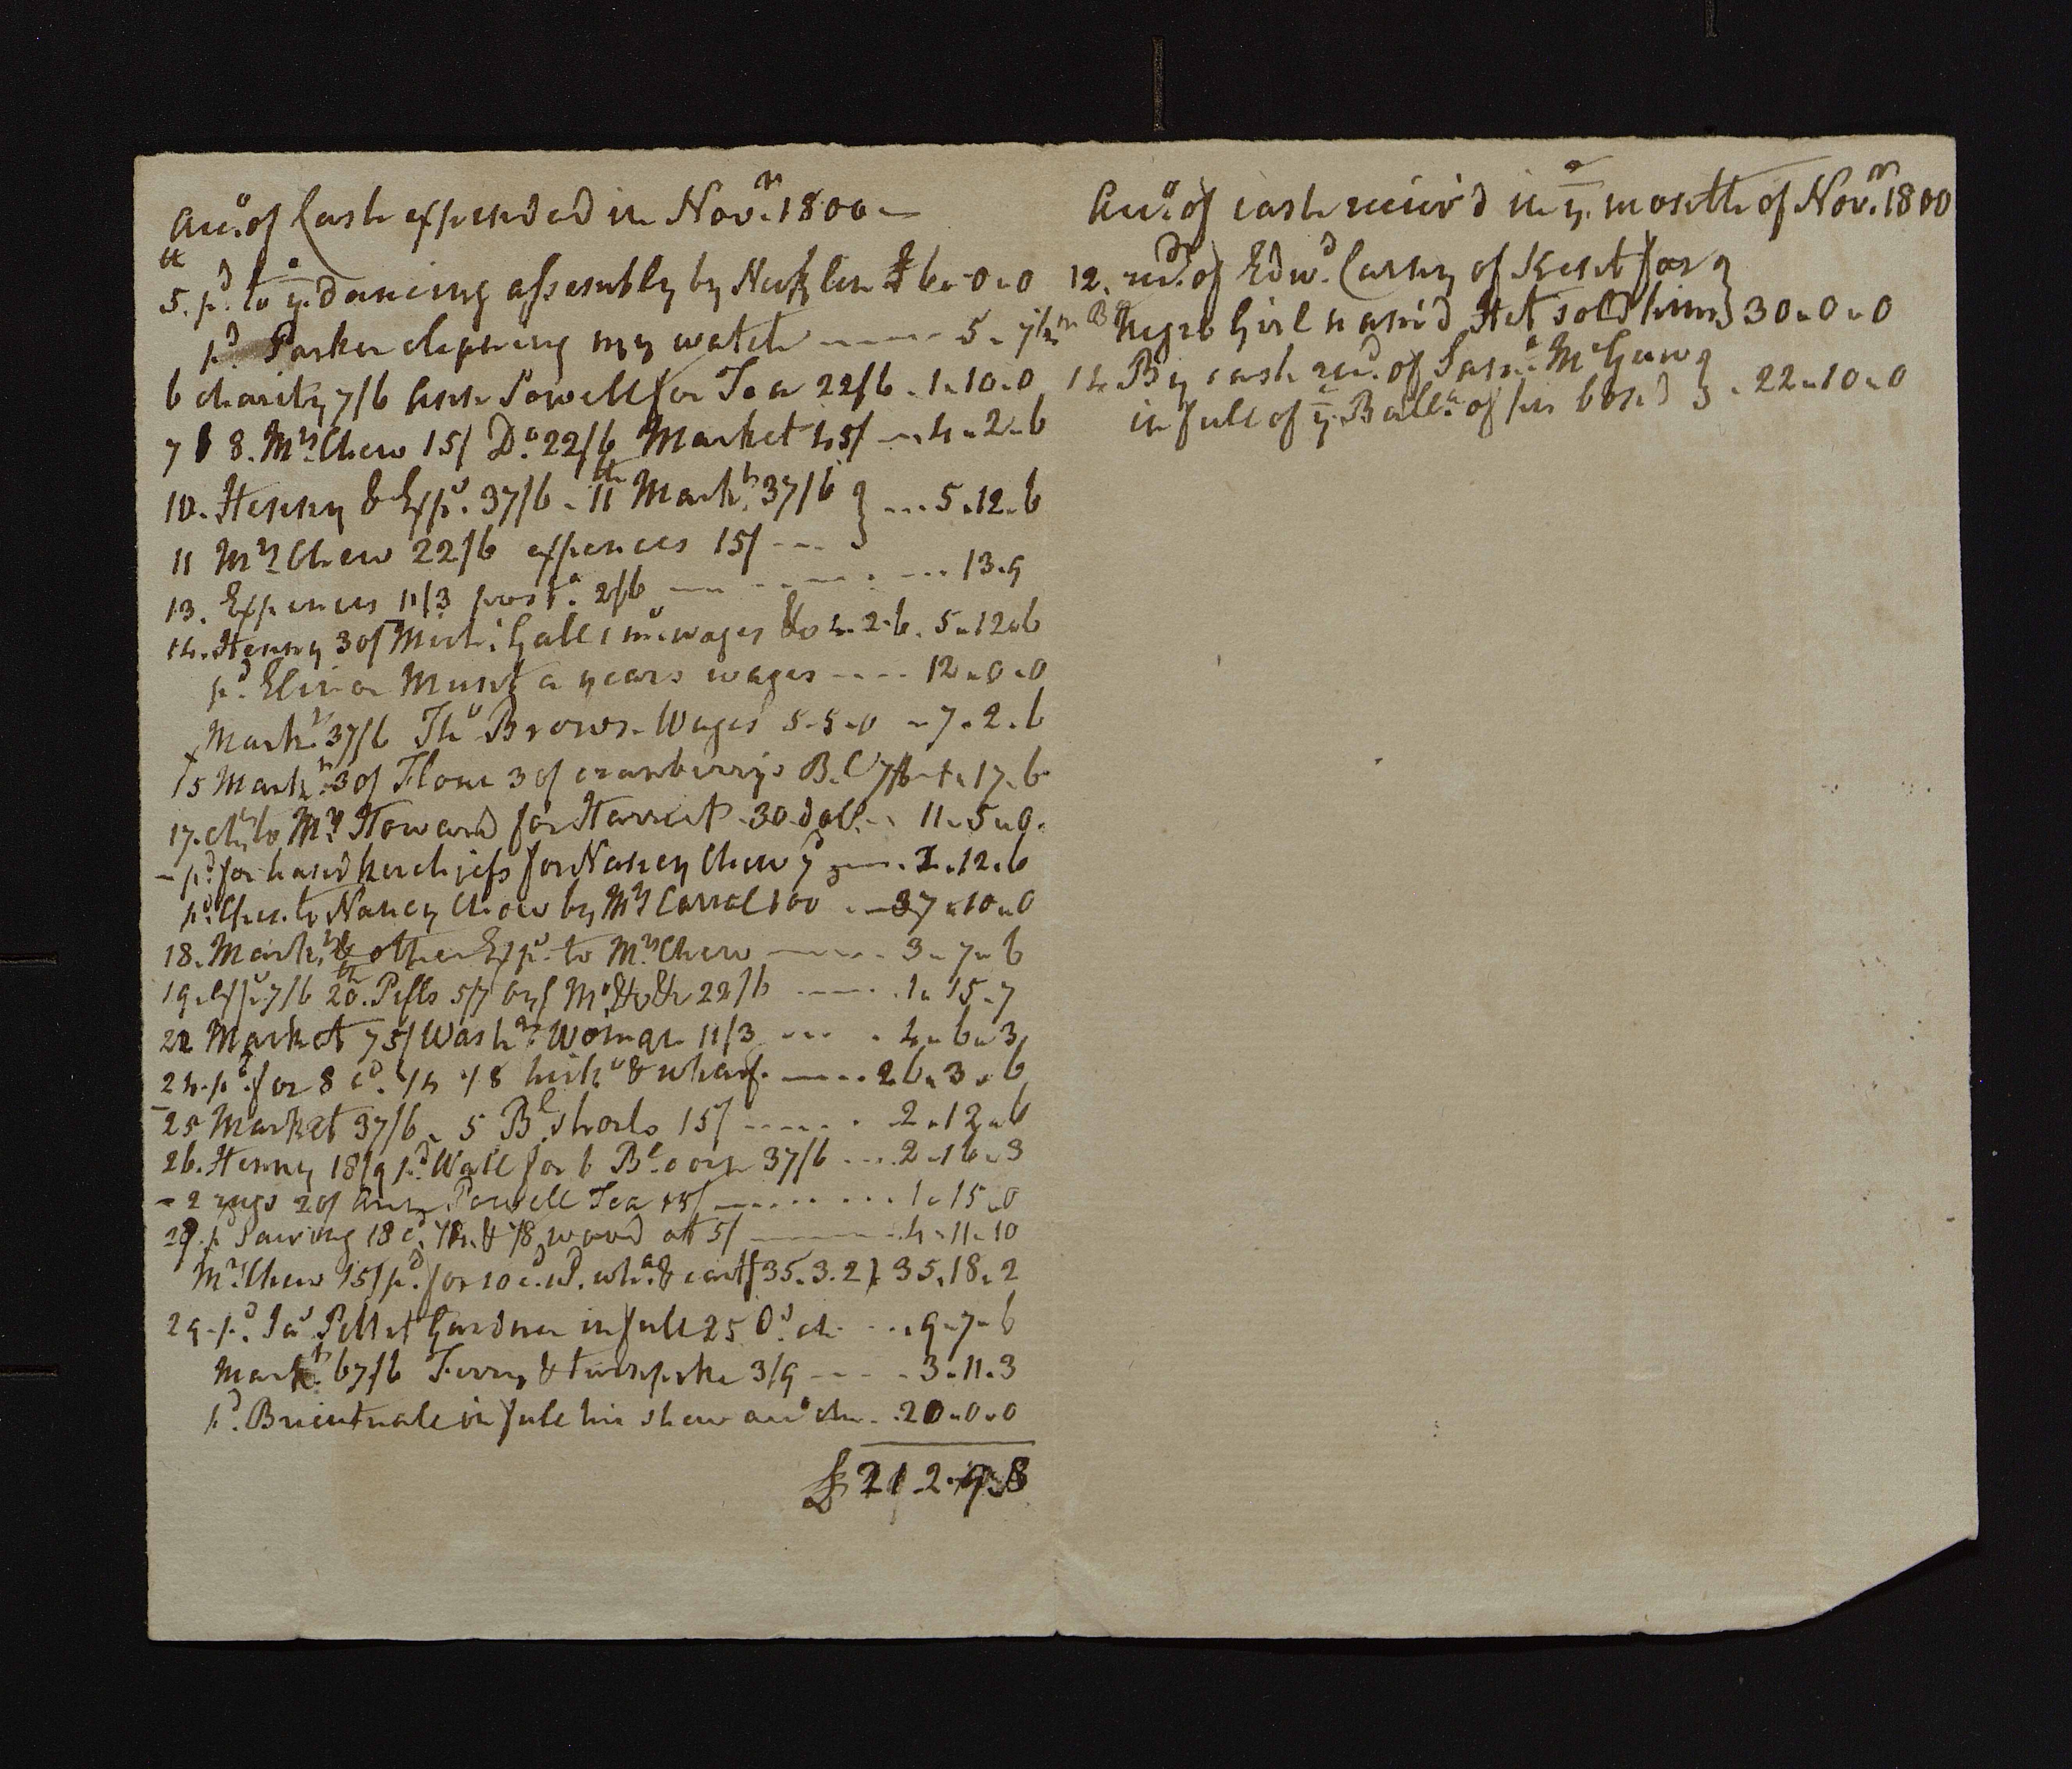 Acc.o of Cash expended in Nov.r 1800
5.th p.d to y.e Dancing assembly by £6-0-0
p.d Parker cleaning my watch 5-7½
6 charity 7/6 Ann Powell for Tea 22/6 1-10-0
7 & 8. Mrs Chew 15/ D.o 22/6 Market 45/ 4-2-6
10. Henny & Exp.s 37/6 - 11th Mark.t 37/6 } 5-12-6
11 Mrs Chew 22/6 expences 15/
13. Expences 11/3 post.a 2/6 13-9
14. Henny 30/ Mich: Gall 1 m.o wages &c 4-2-6. 5-12-6
p.d Elinor Munt a years wages 12-0-0
Mark.t 37/6 Tho.s Brown Wages 5-5-0 7-2-6
15 Mark.t 30/ Flour 30/ cranberrys B.C 7/6 17-6
17. ch. to Mrs Howard for Harriet 30 doll. 11-5-0
- p.d for handkerchiefs for Nancy Chew 12-6
p.d Chec. to Nancy Chew by Mr Carrol 100 37-10-0
18. Mark.t & other Exp.s to Mrs Chew 3-7-6
19. exp.s 7/6 20.th 5/7 &c 22/6 1-15-7
22 Market 75/ Wash.g Woman 11/3 4-6-3
24. p.d for 8 c.d ¼ ⅛ hick.o & wharf. 26-3-6
25 Market 37/6 5 B.l shorts 15/ 2-12-6
26. Henny 18/9 p.d Wall for 6 B.l corn 37/6 2-16-3
- 2 rugs 20/ Ann Powell Tea 15/ 1-15-0
p.d Sawing 18 c.d ¼ & ⅛ wood att 5/ 4-11-10
Mrs Chew 15/ p.d for 10 c.d w.d wh.a & cart 35.3.2 } 35.18.2
29. p.d Ja.s Gardner in full 25 D.s ch. 9-7-6
Mark.t 67/6 Ferry & turnpike 3/9 3-11-3
p.d in full his shew acc.o ch. 20-0-0
£212-9-8
Acc.o of cash receiv'd in y.e month of Nov.r 1800
12. rec.d of Edw.d Carny of Kent for }
Negro Girl nam'd Het sold him } 30-0-0
14 By cash rec.d of Sam.l McGaw }
in full of y.e Ball.a of his bond } 22-10-0